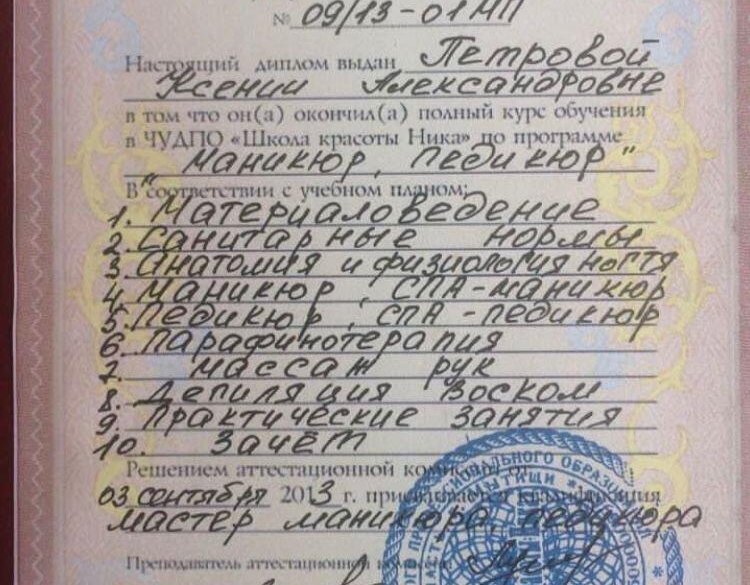 № 09/13-01МП
Настоящий диплом выдан Петровой
Ксении Александровне
в том что он(а) окончил(а) полный курс обучения
в ЧУДПО «Школа красоты Ника» по программе
"Маникюр, педикюр"
В соответствии с учебном планом:
1. Материаловедение
2. Санитарные нормы
3. Анатомия и физиология ногтя
4. Маникюр, СПА-маникюр
5. Педикюр, СПА-педикюр
6. Парафинотерапия
7. массаж рук
8. Депиляция воском
9. Практические занятия
10. Зачёт
Решением аттестационной комиссии от
03 сентября 2013 г. присваивается квалификация
мастер маникюра, педикюра
Преподаватель аттестационной комиссии